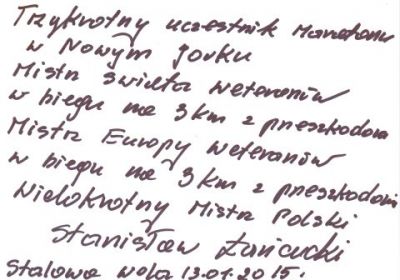 Trzykrotny uczestnik Maratonu
w Nowym Jorku
Mistrz Świata weteranów
w biegu na 3 km z przeszkodami
Mistrz Europy weteranów
w biegu na 3 km z przeszkodami
Wielokrotny Mistrz Polski
Stanisław Łańcucki
Stalowa Wola 13.01.2015r.